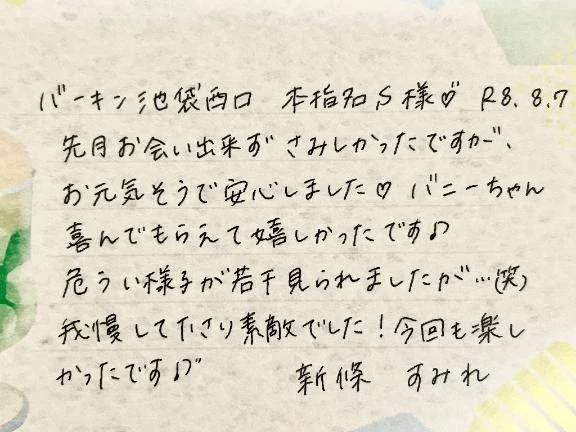 バーキン池袋西口 本指名S様♡ R8.8.7
先月お会い出来ずさみしかったですが、
お元気そうで安心しました♡ バニーちゃん
喜んでもらえて嬉しかったです♪
危うい様子が若干見られましたが…(笑)
我慢してたさり素敵でした！今回も楽し
かったです♪
新條 すみれ